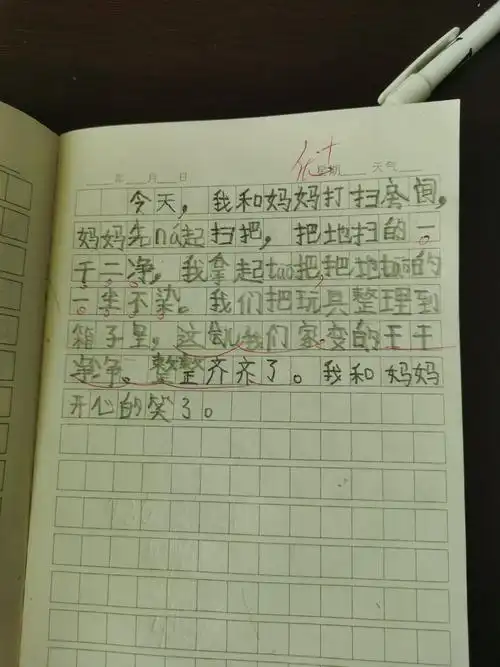 优+
年 月 日 星期 天气
今天，我和妈妈打扫房间，
妈妈先ná起扫把，把地扫的一
干二净，我拿起tao把，把地tao的
一尘不染。我们把玩具整理到
箱子里，这我们家变的干干
净净。整整齐齐了。我和妈妈
开心的笑了。